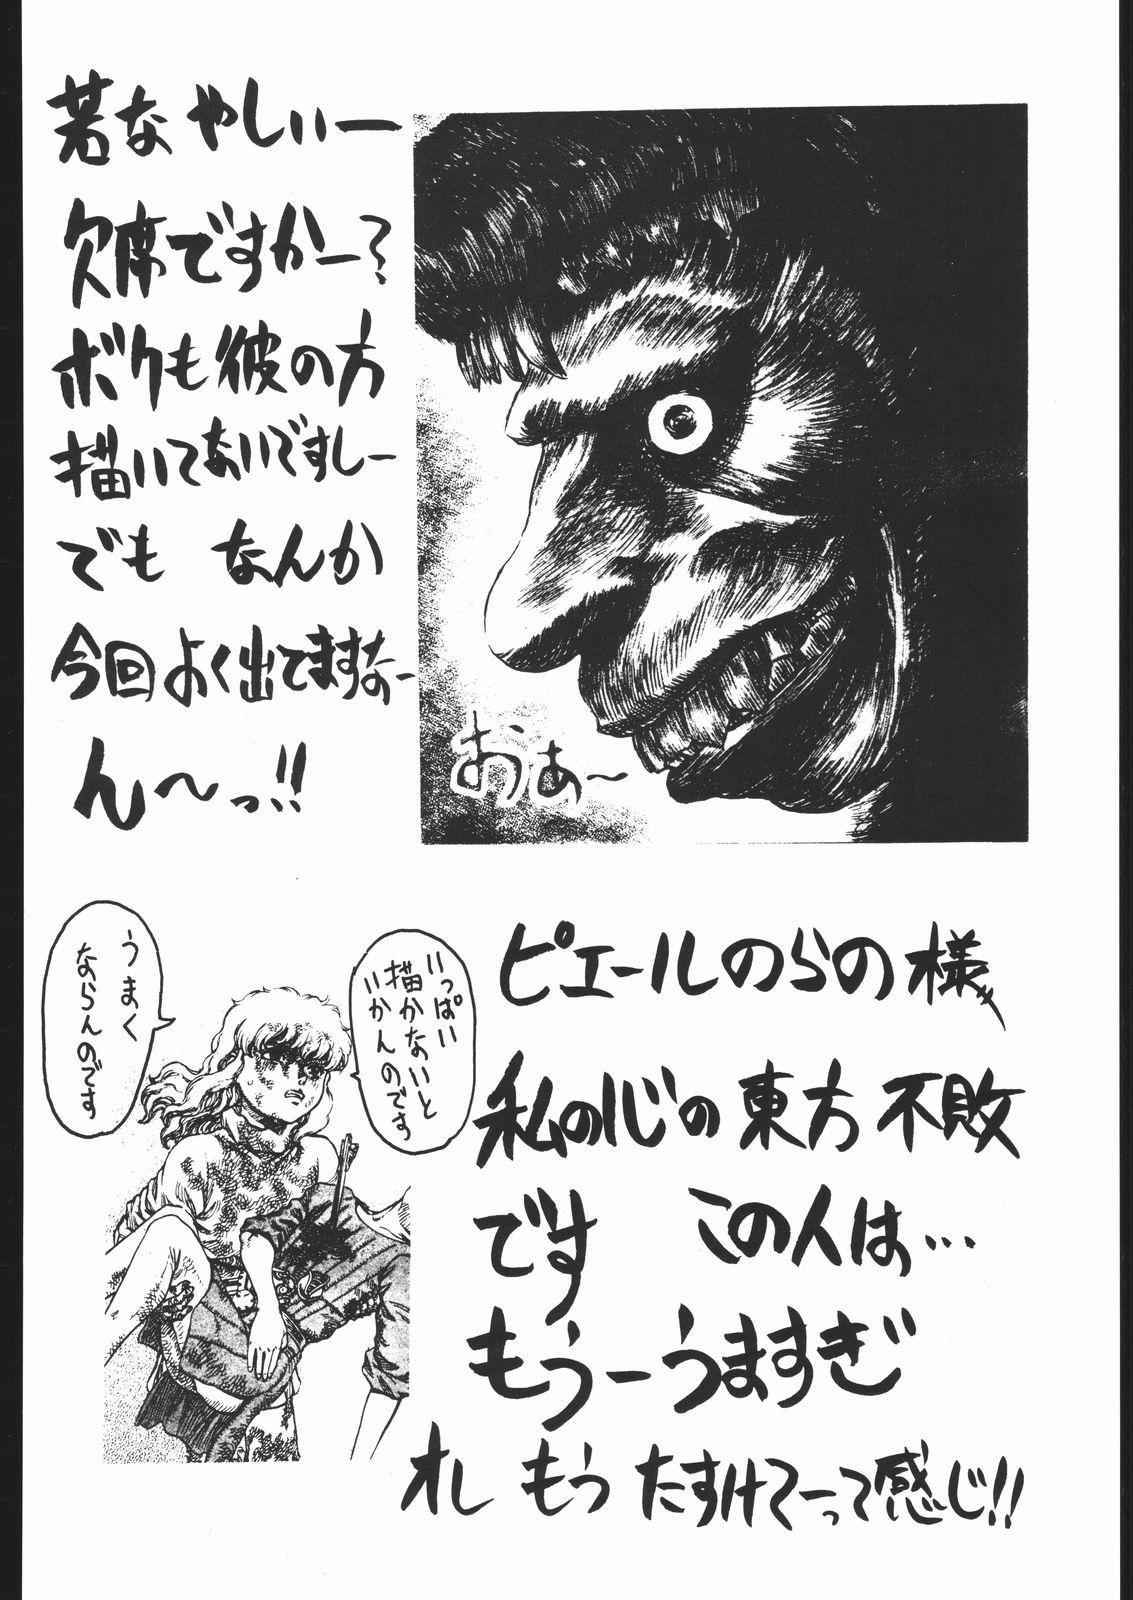 若なやしぃー
欠席ですかー？
ボクも彼の方
描いてないですしー
でも なんか
今回よく出てますなー
ん〜っ!!
おぁ〜
いっぱい
描かないと
いかんのです
うまく
ならんのです
ピエールのらの様
私の心の東方不敗
です この人は…
もうーうますぎ
オレ もう たすけてーって感じ!!